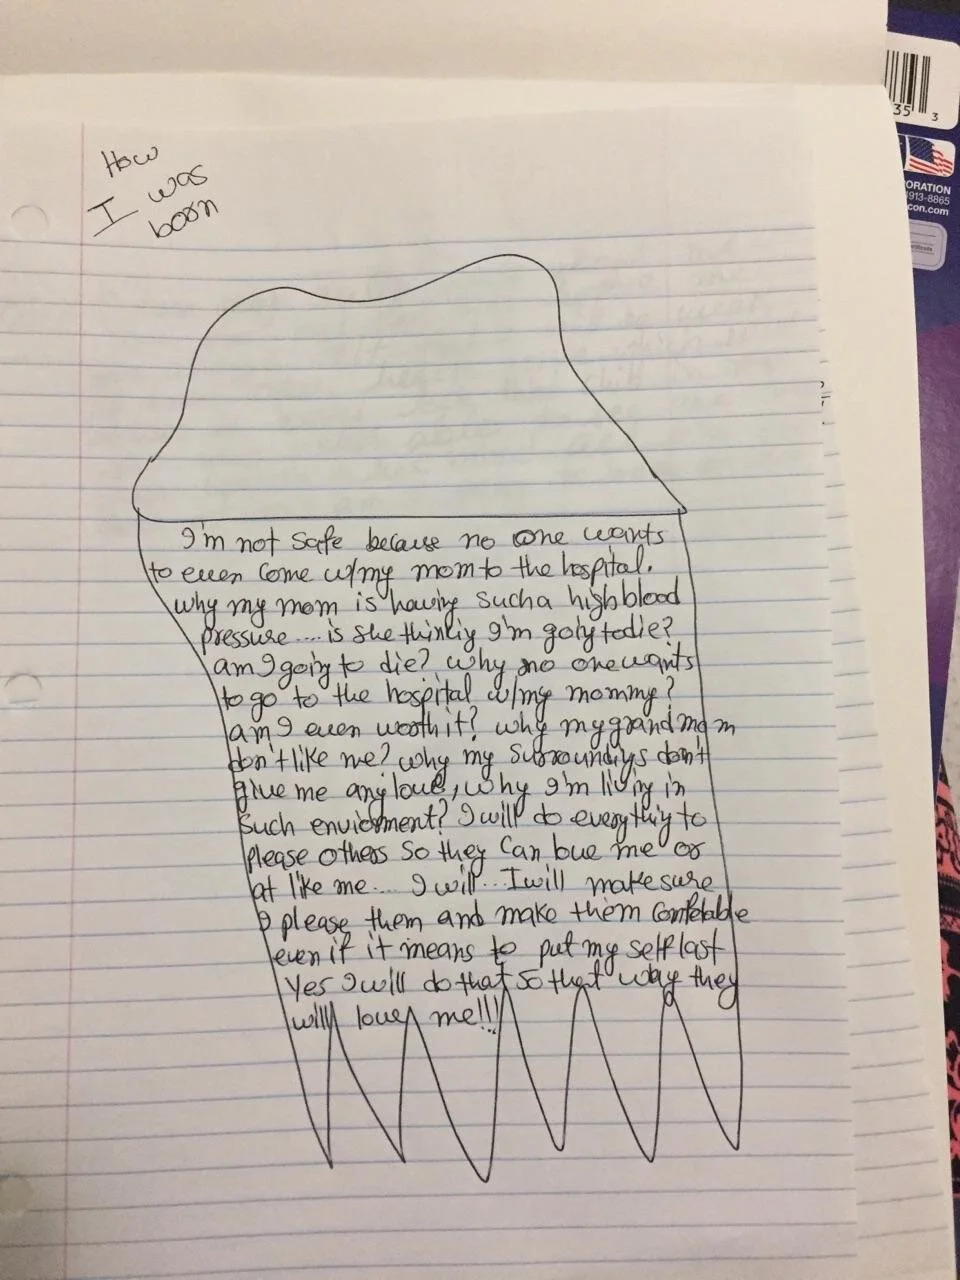 How
I was
born
I'm not safe because no one wants
to even come w/my mom to the hospital.
why my mom is having such a high blood
pressure.... is she thinkiy I'm goiy to die?
am I goiy to die? why no one wants
to go to the hospital w/my mommy?
am I even worth it? why my grand mom
don't like me? why my surroundiys don't
give me any love, why I'm liviy in
such enviorment? I will do everythiy to
please others so they can love me or
at like me.... I will... I will make sure
I please them and make them comfetable
even if it means to put my self last
Yes I will do that so that way they
will love me!!!
35 3
ORATION
913-8865
con.com